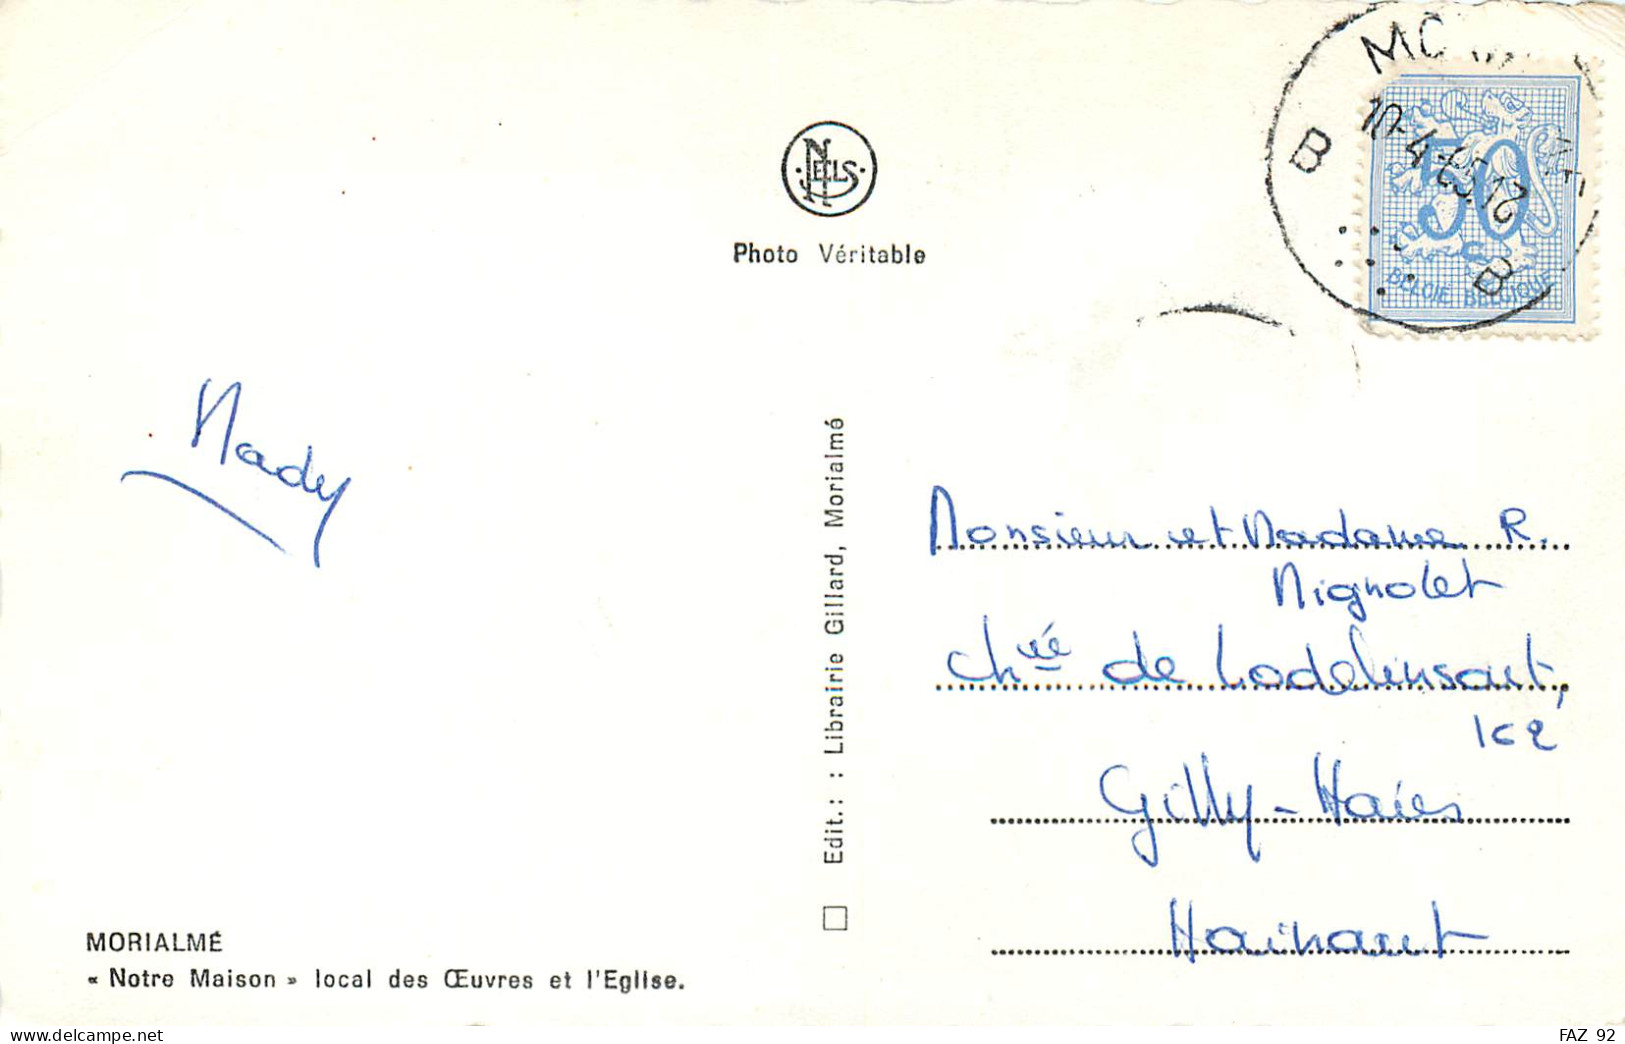 NELS
Photo Véritable
10-4-65.12
B
B
50
c
BELGIE BELGIQUE
Nady
Edit. : Librairie Gillard, Morialmé
Monsieur et Madame R.
Mignolet
Chée de Lodelinsart,
162
Gilly-Haies
Hainaut
MORIALMÉ
« Notre Maison » local des Œuvres et l'Eglise.
FAZ 92